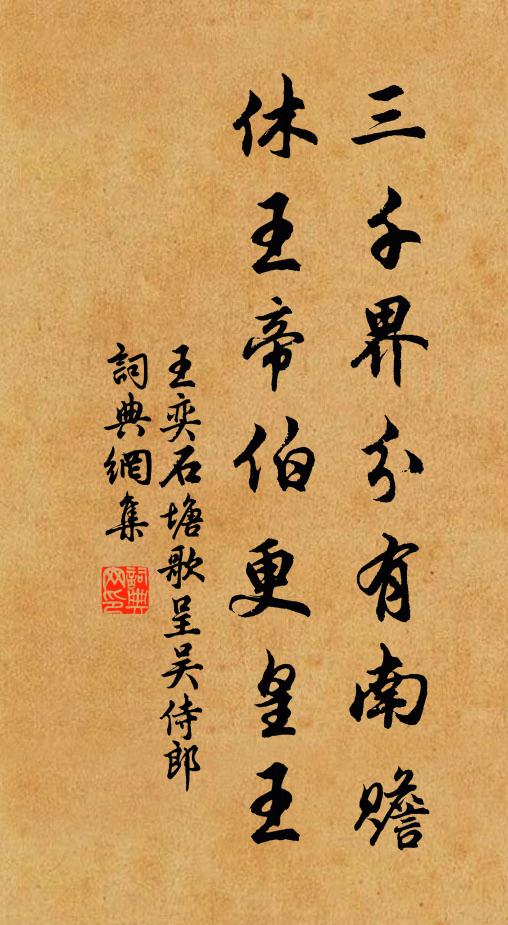 三千界分有南贍
休王帝伯更皇王
王奕石塘歌呈吴侍郎
詞典網集
詞典网印